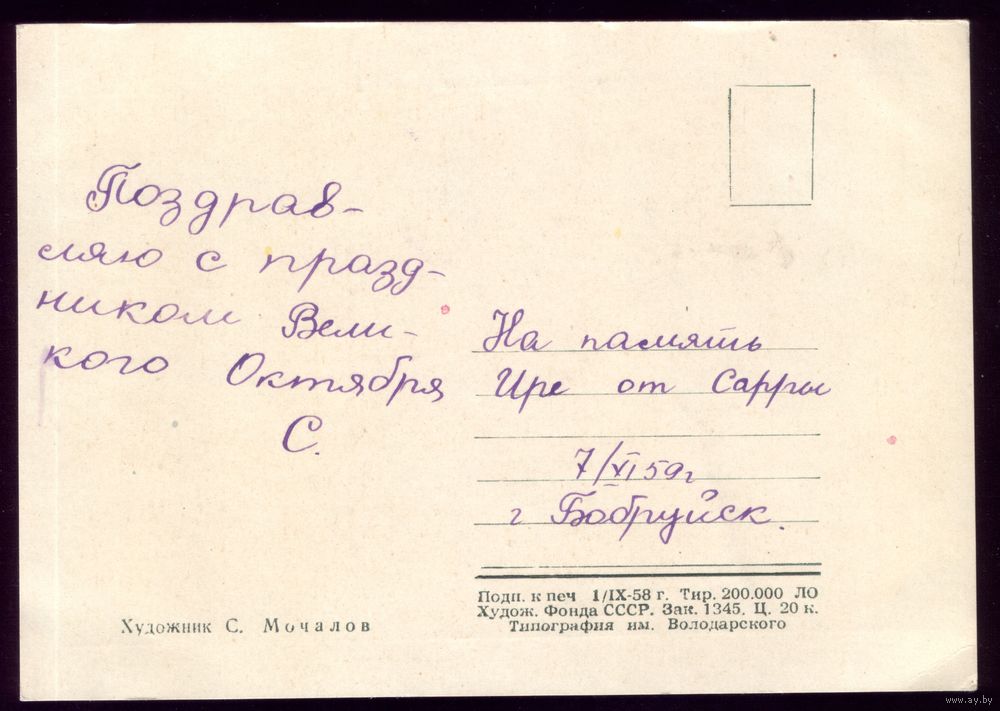 Поздрав-
ляю с празд-
ником Вели-
кого Октября
С.
На память
Ире от Сарры
7/XI 59г
г Бобруйск.
Подп. к печ 1/IX-58 г. Тир. 200.000 ЛО
Худож. Фонда СССР. Зак. 1345. Ц. 20 к.
Типография им. Володарского
Художник С. Мочалов
www.ay.by